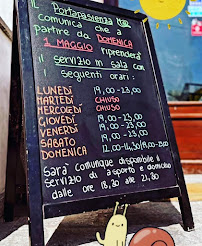 IL PORTAPASIENZA
comunica che a
partire da DOMENICA
1 MAGGIO riprenderà
il servizio in sala con
i seguenti orari:
LUNEDÌ 19,00-23,00
MARTEDÌ CHIUSO
MERCOLEDÌ CHIUSO
GIOVEDÌ 19,00-23,00
VENERDÌ 19,00-23,00
SABATO 19,00-23,00
DOMENICA 12,00-14,30/19,00-23,00
Sarà comunque disponibile il
servizio di asporto e domicilio
dalle ore 18,30 alle 21,30